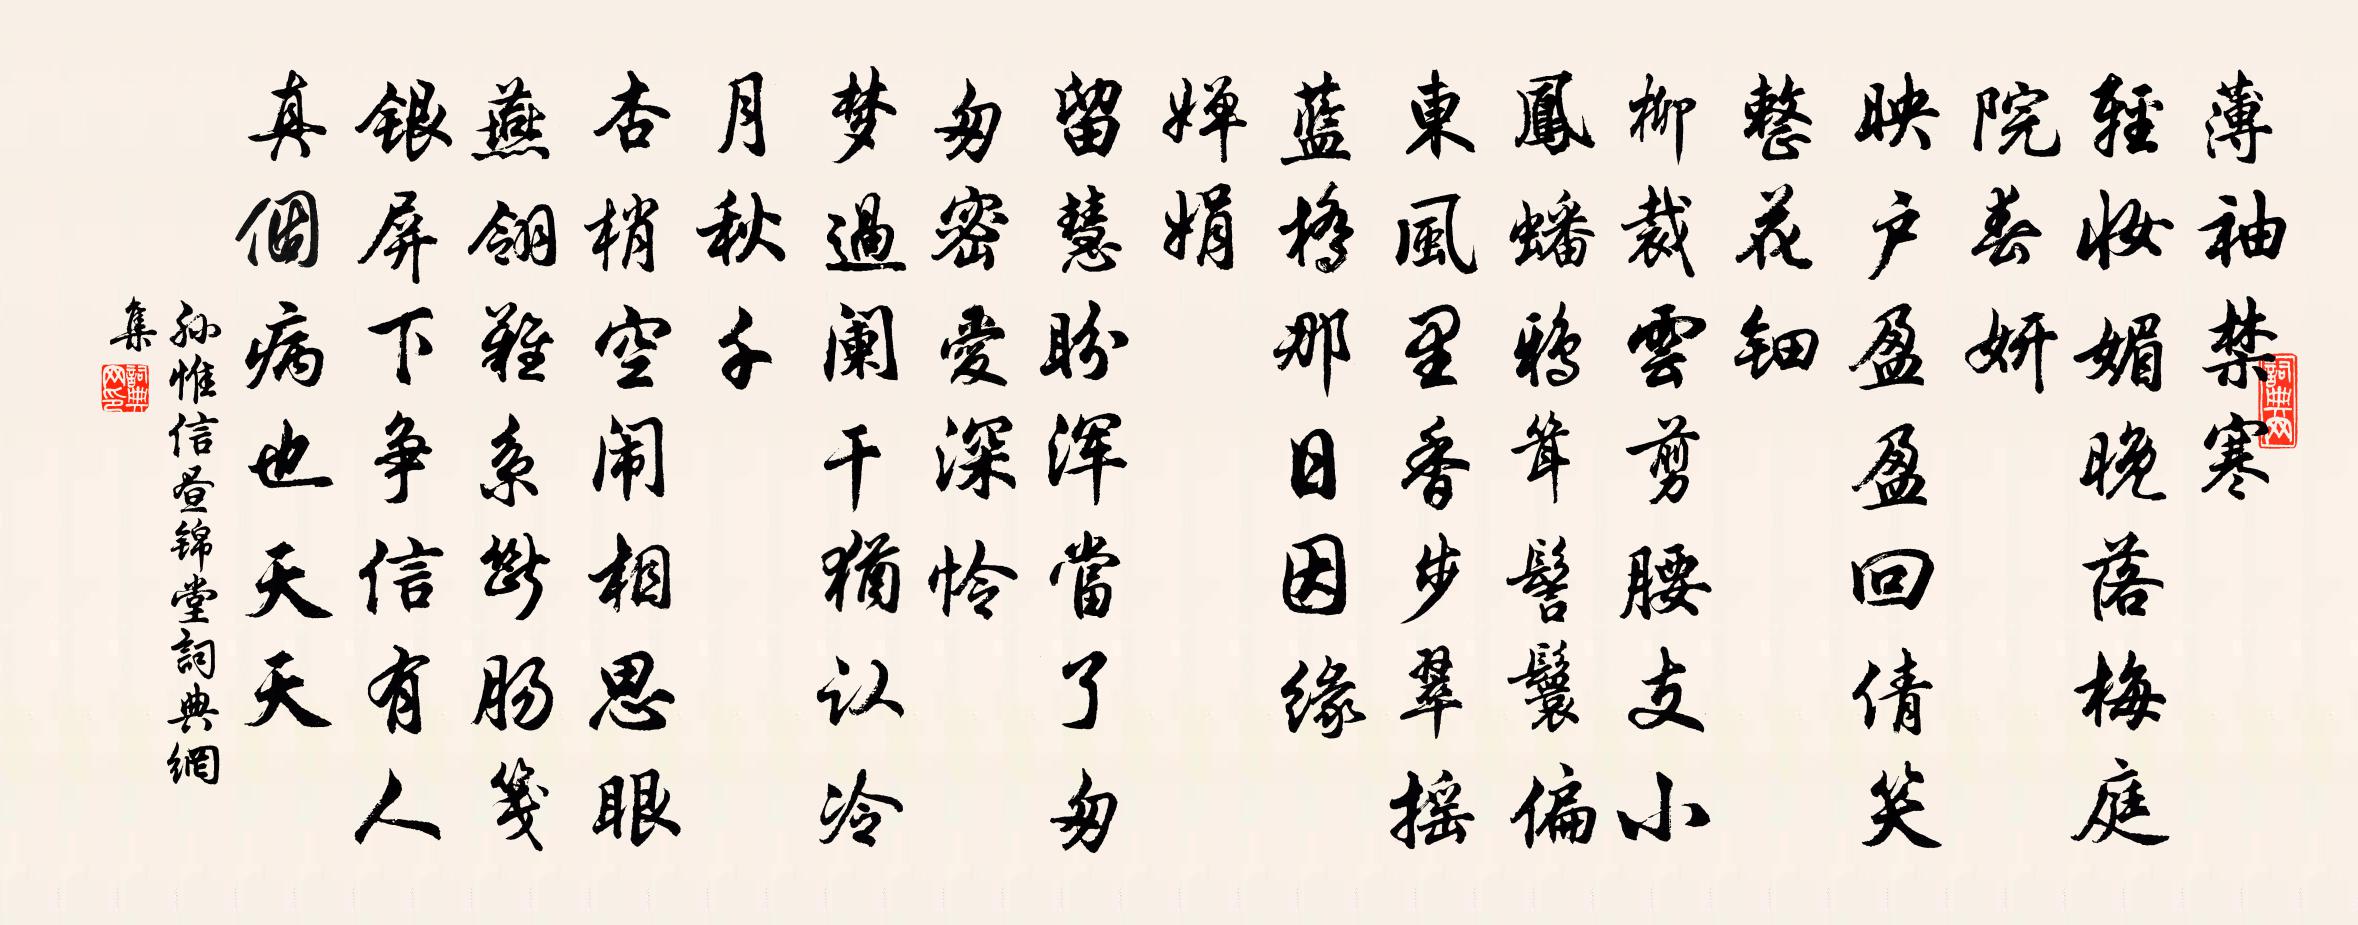 薄袖禁寒
輕妝媚晚落梅庭
院春妍
映户盈盈回倩笑
整花钿
柳裁雲剪腰支小
鳳蟠鴉耸髻鬟偏
東風里香步翠摇
藍橋那日因缘
婵娟
留慧盼浑當了匆
匆密愛深怜
梦過阑干犹认冷
月秋千
杏梢空闹相思眼
燕翎難系断肠笺
银屏下争信有人
真個病也天天
孙惟信昼锦堂詞典網
集
詞典网
詞典网印